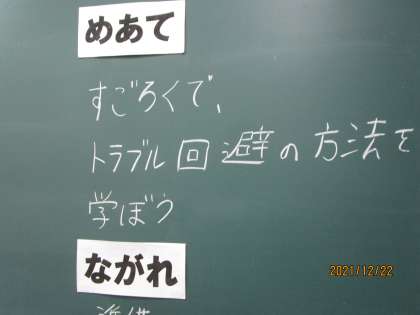 めあて
すごろくで、
トラブル回避の方法を
学ぼう
ながれ
準備
2021/12/22